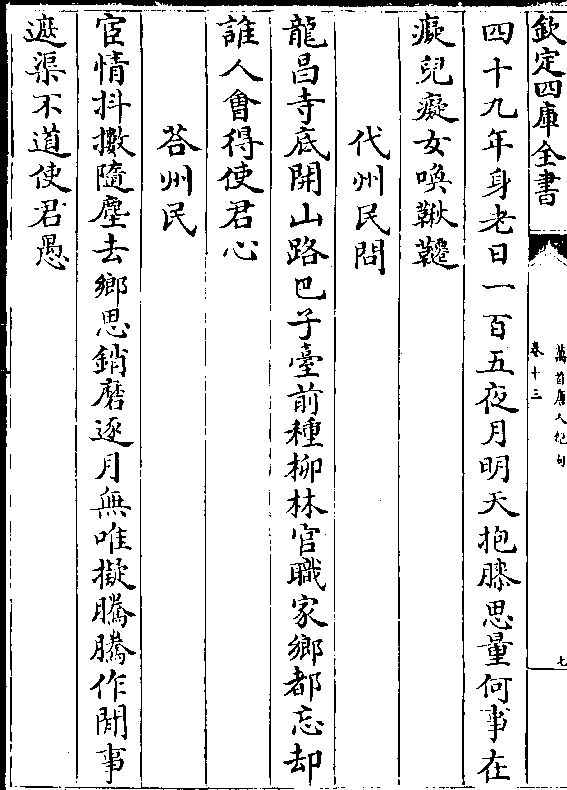 欽定四庫全書
萬首唐人絶句
卷十三
七
四十九年身老日一百五夜月明天抱膝思量何事在
癡兒癡女喚鞦韆
代州民問
龍昌寺底開山路巴子臺前種柳林官職家鄉都忘却
誰人會得使君心
荅州民
宦情抖擻隨塵去鄉思銷磨逐月無唯擬騰騰作閒事
遮渠不道使君愚